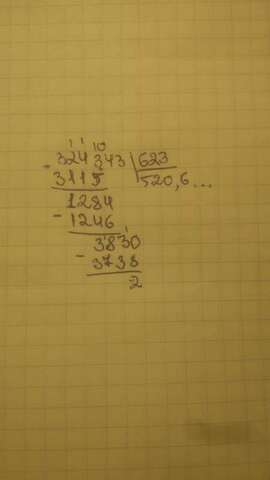 1 1 10
324343 | 623
- 3115 | 520,6...
1284
- 1246
3830
- 3738
2